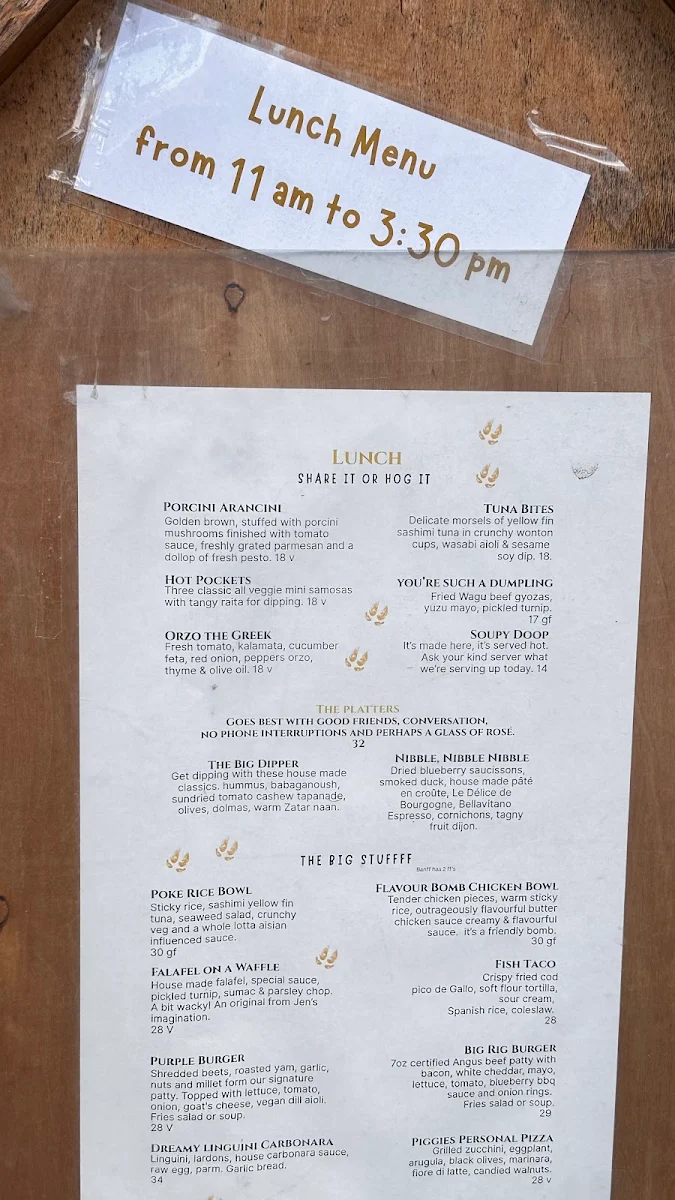 Lunch Menu
from 11 am to 3:30 pm
LUNCH
SHARE IT OR HOG IT
PORCINI ARANCINI
Golden brown, stuffed with porcini
mushrooms finished with tomato
sauce, freshly grated parmesan and a
dollop of fresh pesto. 18 v
HOT POCKETS
Three classic all veggie mini samosas
with tangy raita for dipping. 18 v
ORZO THE GREEK
Fresh tomato, kalamata, cucumber
feta, red onion, peppers orzo,
thyme & olive oil. 18 v
TUNA BITES
Delicate morsels of yellow fin
sashimi tuna in crunchy wonton
cups, wasabi aioli & sesame
soy dip. 18.
YOU'RE SUCH A DUMPLING
Fried Wagu beef gyozas,
yuzu mayo, pickled turnip.
17 gf
SOUPY DOOP
It's made here, it's served hot.
Ask your kind server what
we're serving up today. 14
THE PLATTERS
GOES BEST WITH GOOD FRIENDS, CONVERSATION,
NO PHONE INTERRUPTIONS AND PERHAPS A GLASS OF ROSÉ.
32
THE BIG DIPPER
Get dipping with these house made
classics. hummus, babaganoush,
sundried tomato cashew tapanade,
olives, dolmas, warm Zatar naan.
NIBBLE, NIBBLE NIBBLE
Dried blueberry saucissons,
smoked duck, house made pâté
en croûte, Le Délice de
Bourgogne, Bellavitano
Espresso, cornichons, tagny
fruit dijon.
THE BIG STUFFFF
Banff has 2 ff's
POKE RICE BOWL
Sticky rice, sashimi yellow fin
tuna, seaweed salad, crunchy
veg and a whole lotta aisian
influenced sauce.
30 gf
FALAFEL ON A WAFFLE
House made falafel, special sauce,
pickled turnip, sumac & parsley chop.
A bit wacky! An original from Jen's
imagination.
28 V
PURPLE BURGER
Shredded beets, roasted yam, garlic,
nuts and millet form our signature
patty. Topped with lettuce, tomato,
onion, goat's cheese, vegan dill aioli.
Fries salad or soup.
28 V
DREAMY LINGUINI CARBONARA
Linguini, lardons, house carbonara sauce,
raw egg, parm. Garlic bread.
34
FLAVOUR BOMB CHICKEN BOWL
Tender chicken pieces, warm sticky
rice, outrageously flavourful butter
chicken sauce creamy & flavourful
sauce. it's a friendly bomb.
30 gf
FISH TACO
Crispy fried cod
pico de Gallo, soft flour tortilla,
sour cream,
Spanish rice, coleslaw.
28
BIG RIG BURGER
7oz certified Angus beef patty with
bacon, white cheddar, mayo,
lettuce, tomato, blueberry bbq
sauce and onion rings.
Fries salad or soup.
29
PIGGIES PERSONAL PIZZA
Grilled zucchini, eggplant,
arugula, black olives, marinara,
fiore di latte, candied walnuts.
28 v